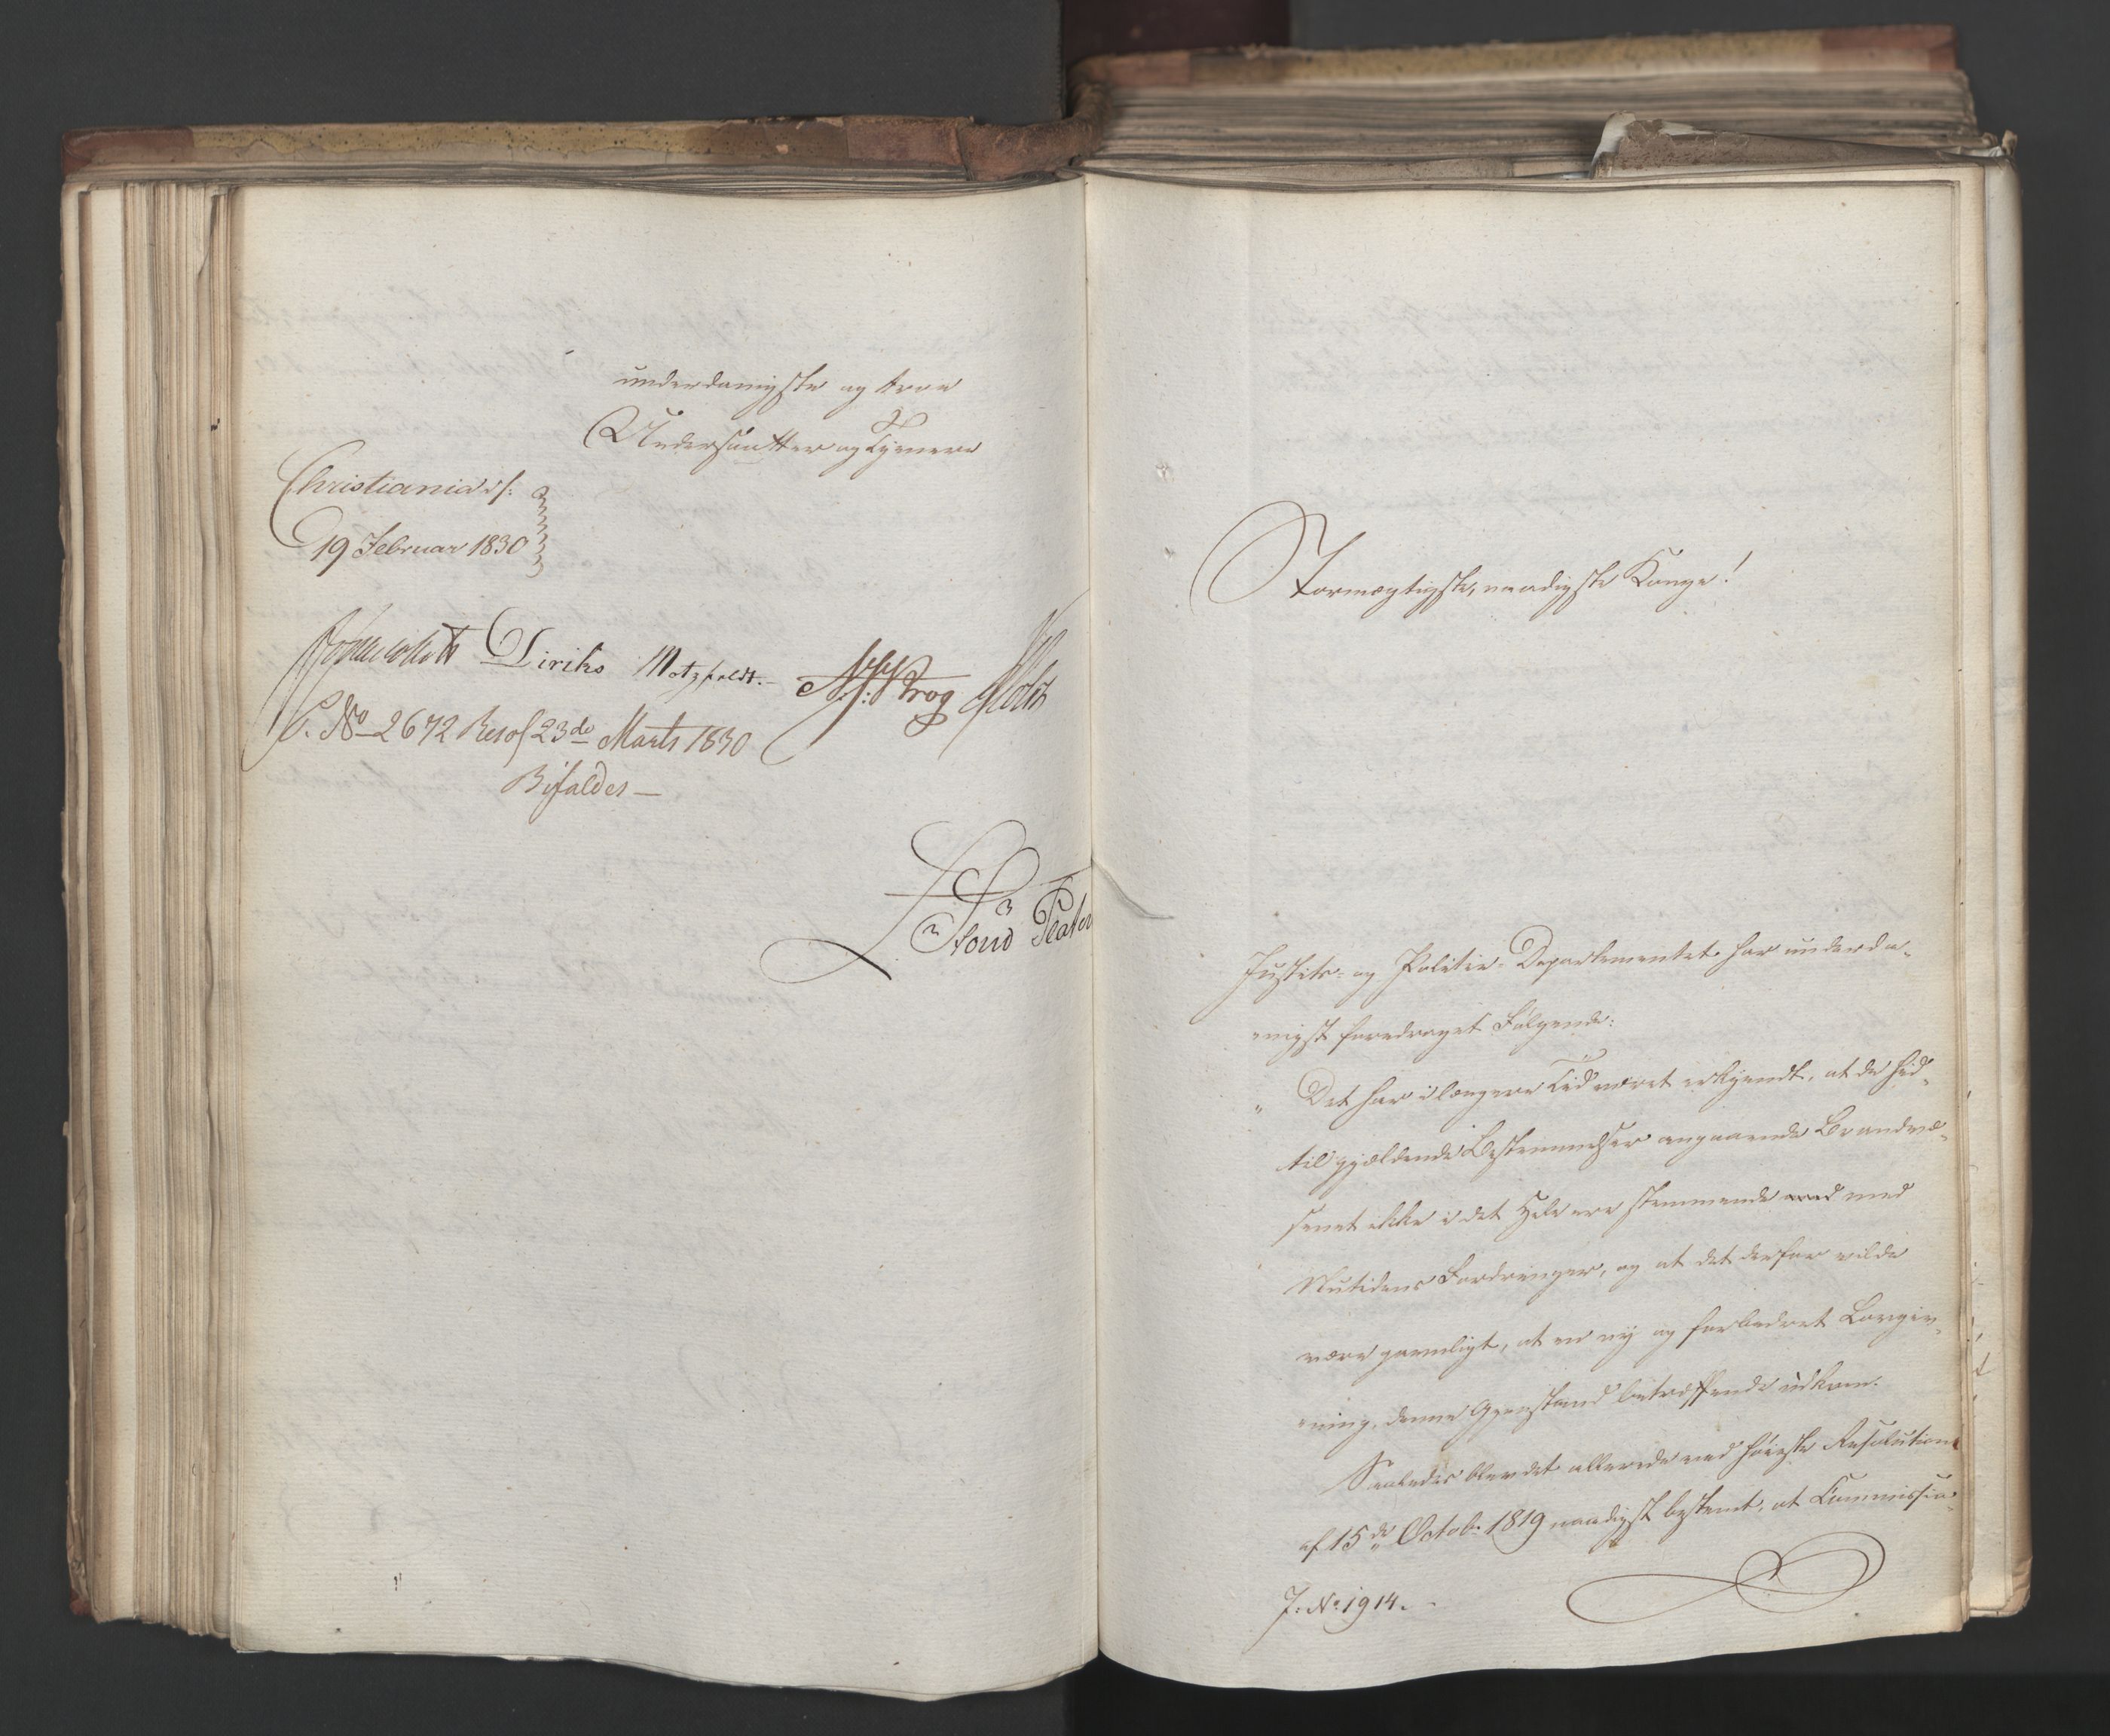 underdanigste og troe
Undersaatter og Tjenere
Christiania d:
19 Februar 1830
Diriks Motzfeldt.
N. J. Krog Holst
C. No 2672 Resol 23de Marts 1830
Bifaldes —
Stormægtigste, naadigste Konge!
Justits- og Politie-Departementet har underda-
nigst foredraget Følgende:
„ Det har i længere Tid været erkjendt, at de hid-
til gjældende Bestemmelser angaaende Brandvæ-
senet ikke i det Hele ere stemmende med med
Nutidens Fordringer, og at det derfor vilde
være gavnligt, at en ny og forbedret Lovgiv-
ning, denne Gjenstand betræffende udkom.
Saaledes blev det allerede ved høieste Resolution
af 15de Octob. 1819 naadigst bestemt, at Commissio-
J: No. 1914.